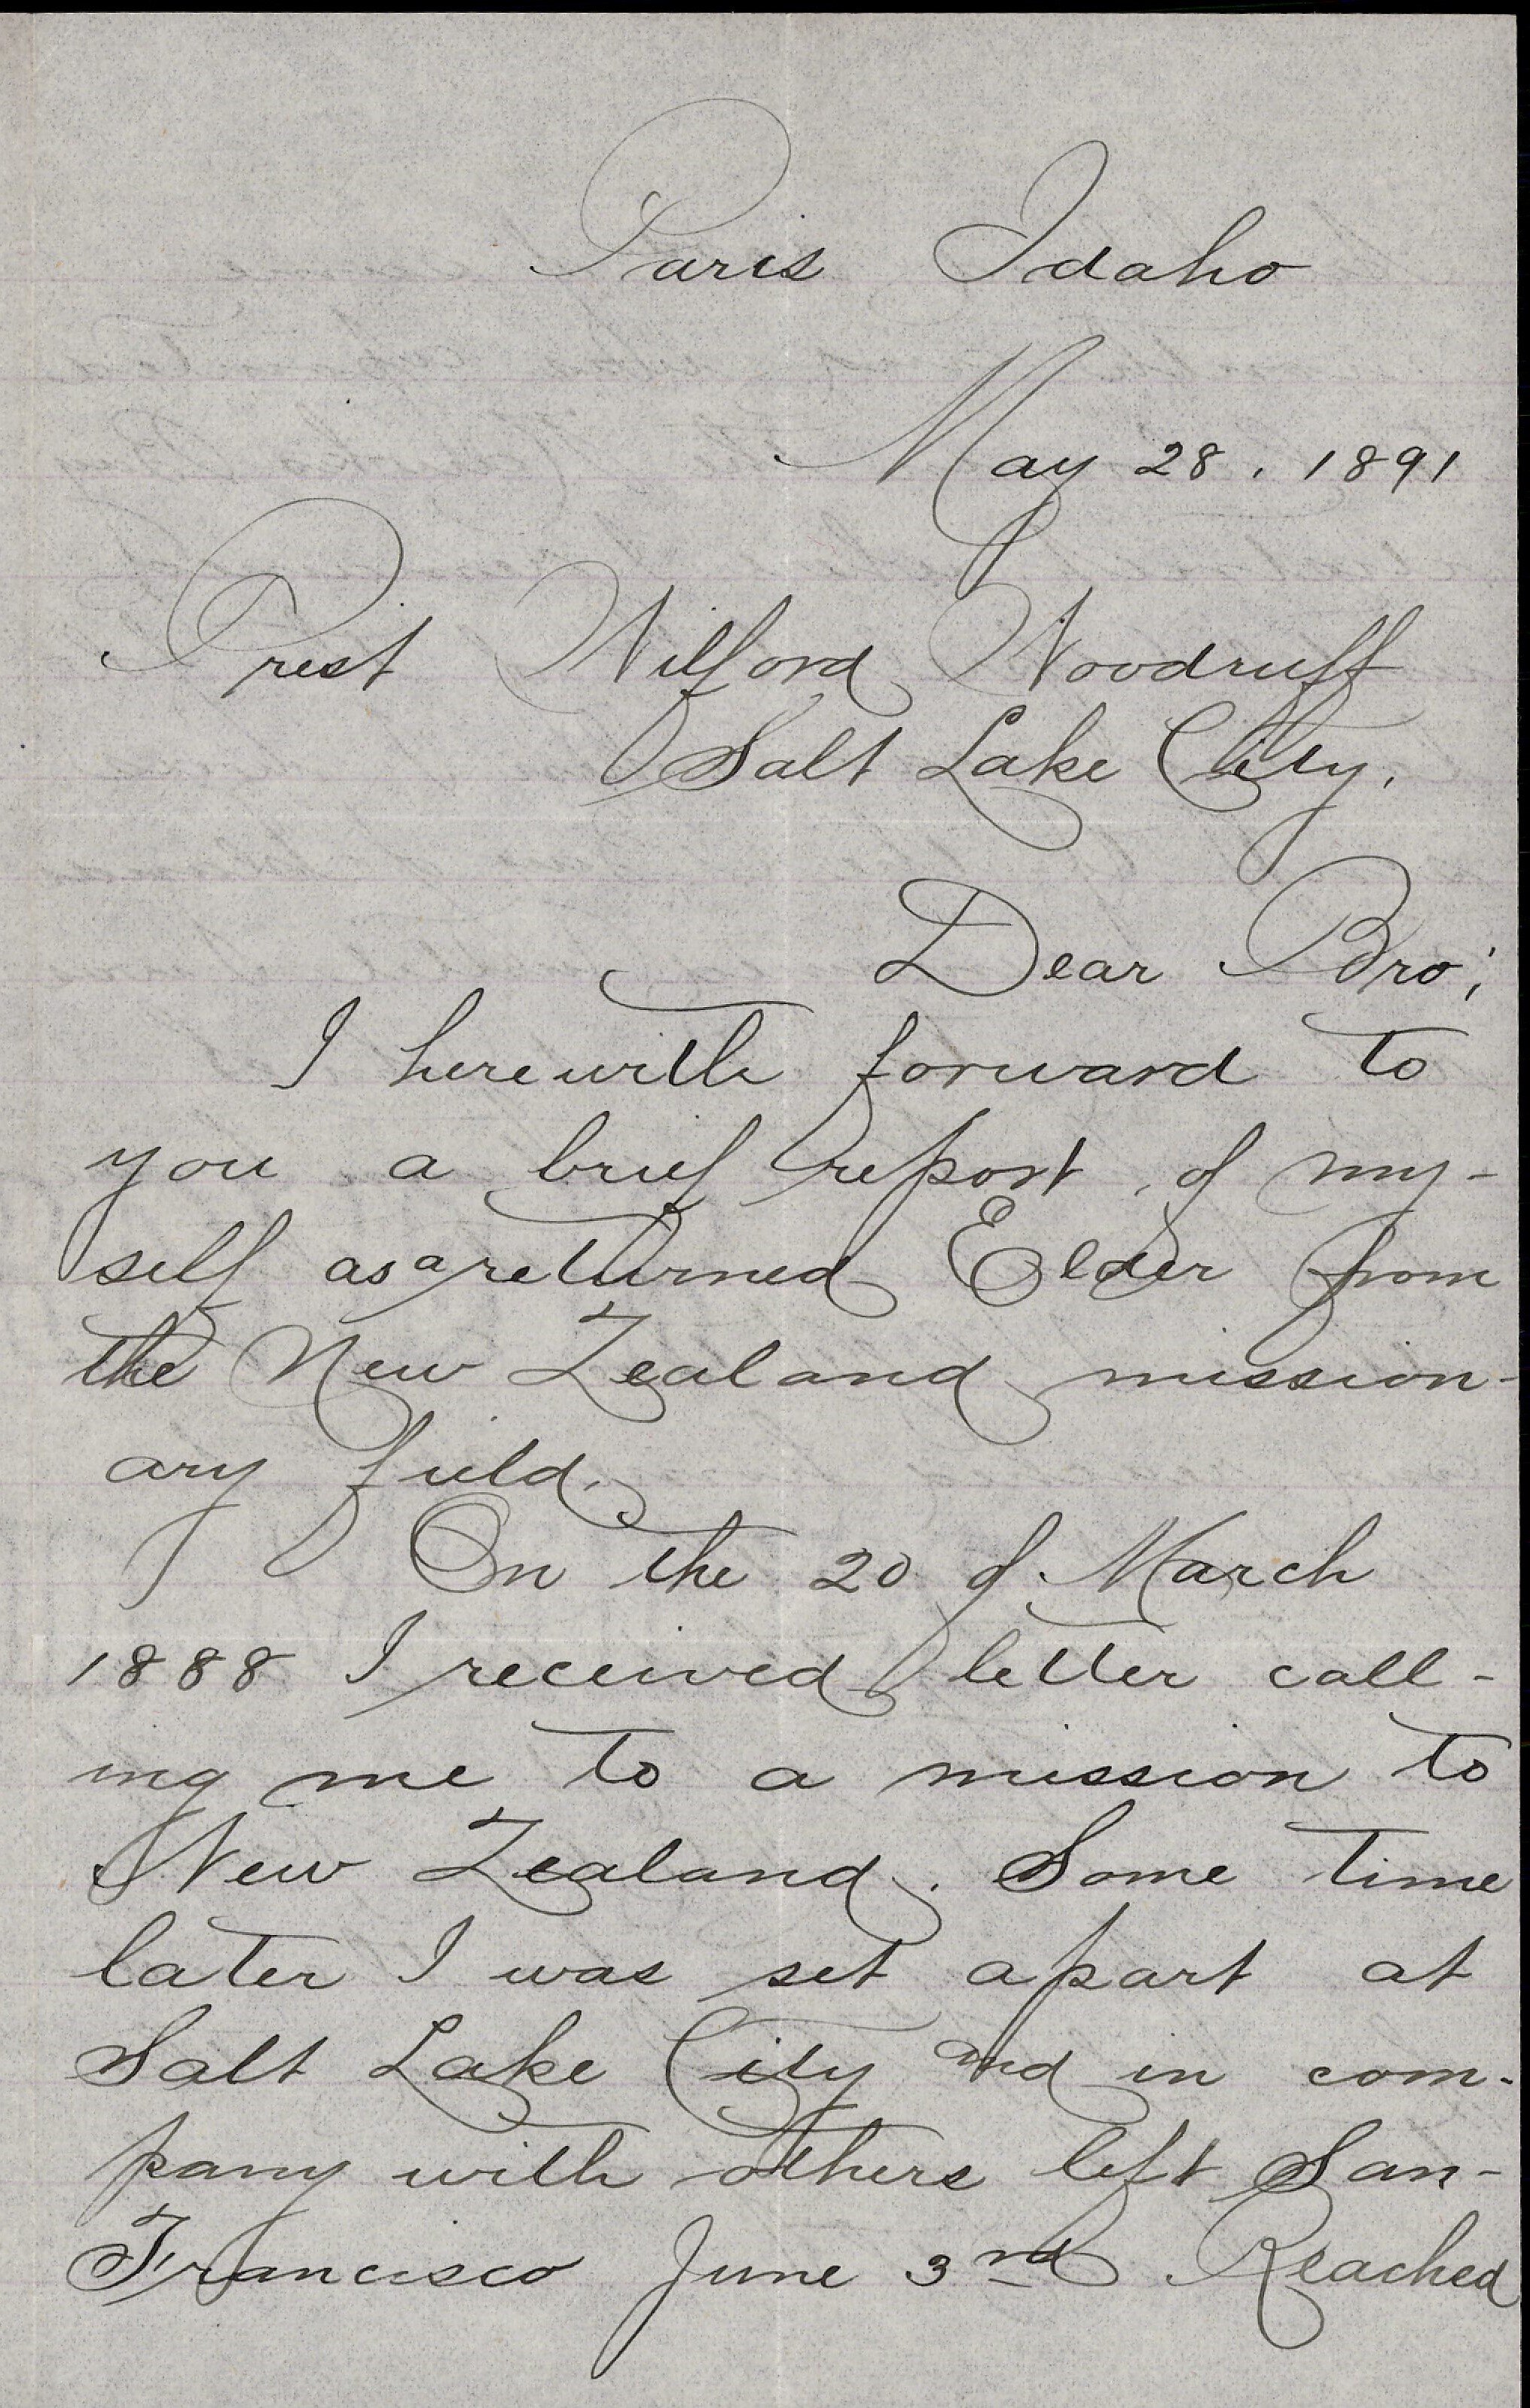 Paris Idaho
May 28, 1891
Prest Wilford Woodruff
Salt Lake City.
Dear Bro;
I herewith forward to
you a brief report of my-
self as a returned Elder from
the New Zealand mission-
ary field.
On the 20 of March
1888 I received letter call-
ing me to a mission to
New Zealand. Some time
later I was set apart at
Salt Lake City and in com-
pany with others left San-
Francisco June 3rd Reached